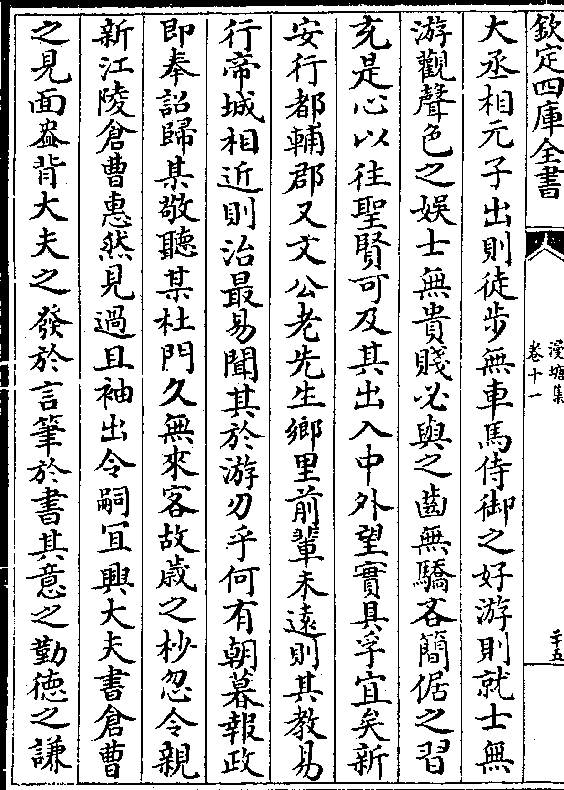 欽定四庫全書
漫塘集
卷十一
二十五
大丞相元子出則徒步無車馬侍御之好游則就士無
游觀聲色之娛士無貴賤必與之齒無驕吝簡倨之習
充是心以往聖賢可及其出入中外望實具孚宜矣新
安行都輔郡又文公老先生鄉里前輩未遠則其教易
行帝城相近則治最易聞其於游刃乎何有朝暮報政
即奉詔歸某敬聽某杜門久無來客故歲之杪忽令親
新江陵倉曹惠然見過且袖出令嗣宜興大夫書倉曹
之見面盎背大夫之發於言筆於書其意之勤徳之謙